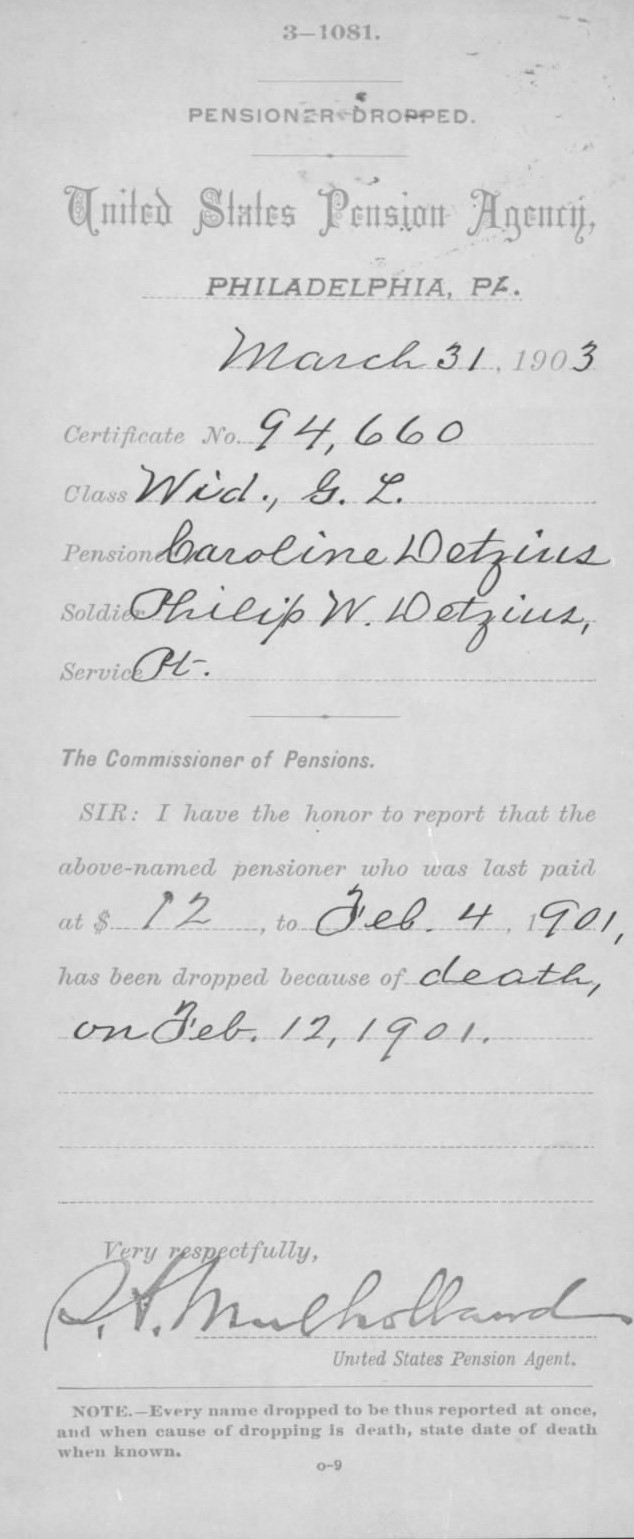 3—1081.
PENSIONER DROPPED.
United States Pension Agency,
PHILADELPHIA, PA.
March 31, 1903
Certificate No. 94,660
Class Wid., G. L.
Pensioner Caroline Detzius
Soldier Philip W. Detzius,
Service Pt.
The Commissioner of Pensions.
SIR: I have the honor to report that the
above-named pensioner who was last paid
at $ 12, to Feb. 4, 1901,
has been dropped because of death,
on Feb. 12, 1901.
Very respectfully,
St. A. Mulholland
United States Pension Agent.
NOTE.—Every name dropped to be thus reported at once,
and when cause of dropping is death, state date of death
when known.
o-9